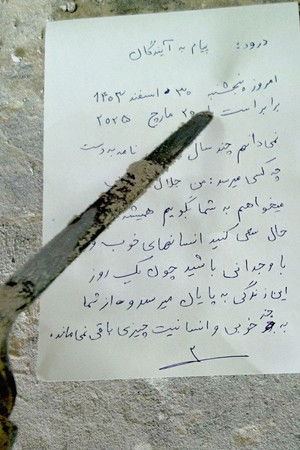 درود: پیام به آیندگان
امروز پنجشبه ۳۰ اسفند ۱۴۰۳
برابر است ۲۰ مارچ ۲۰۲۵
نمی‌دانم چند سال نامه به دست
چه کسی میرسد: من جلال
میخواهم به شما بگویم همیشه
حال سعی کنید انسانهای خوب و
با وجدانی باشید چون یک روز
این زندگی به پایان میرسد و از شما
به جز خوبی و انسانیت چیزی باقی نمی‌ماند.
۲